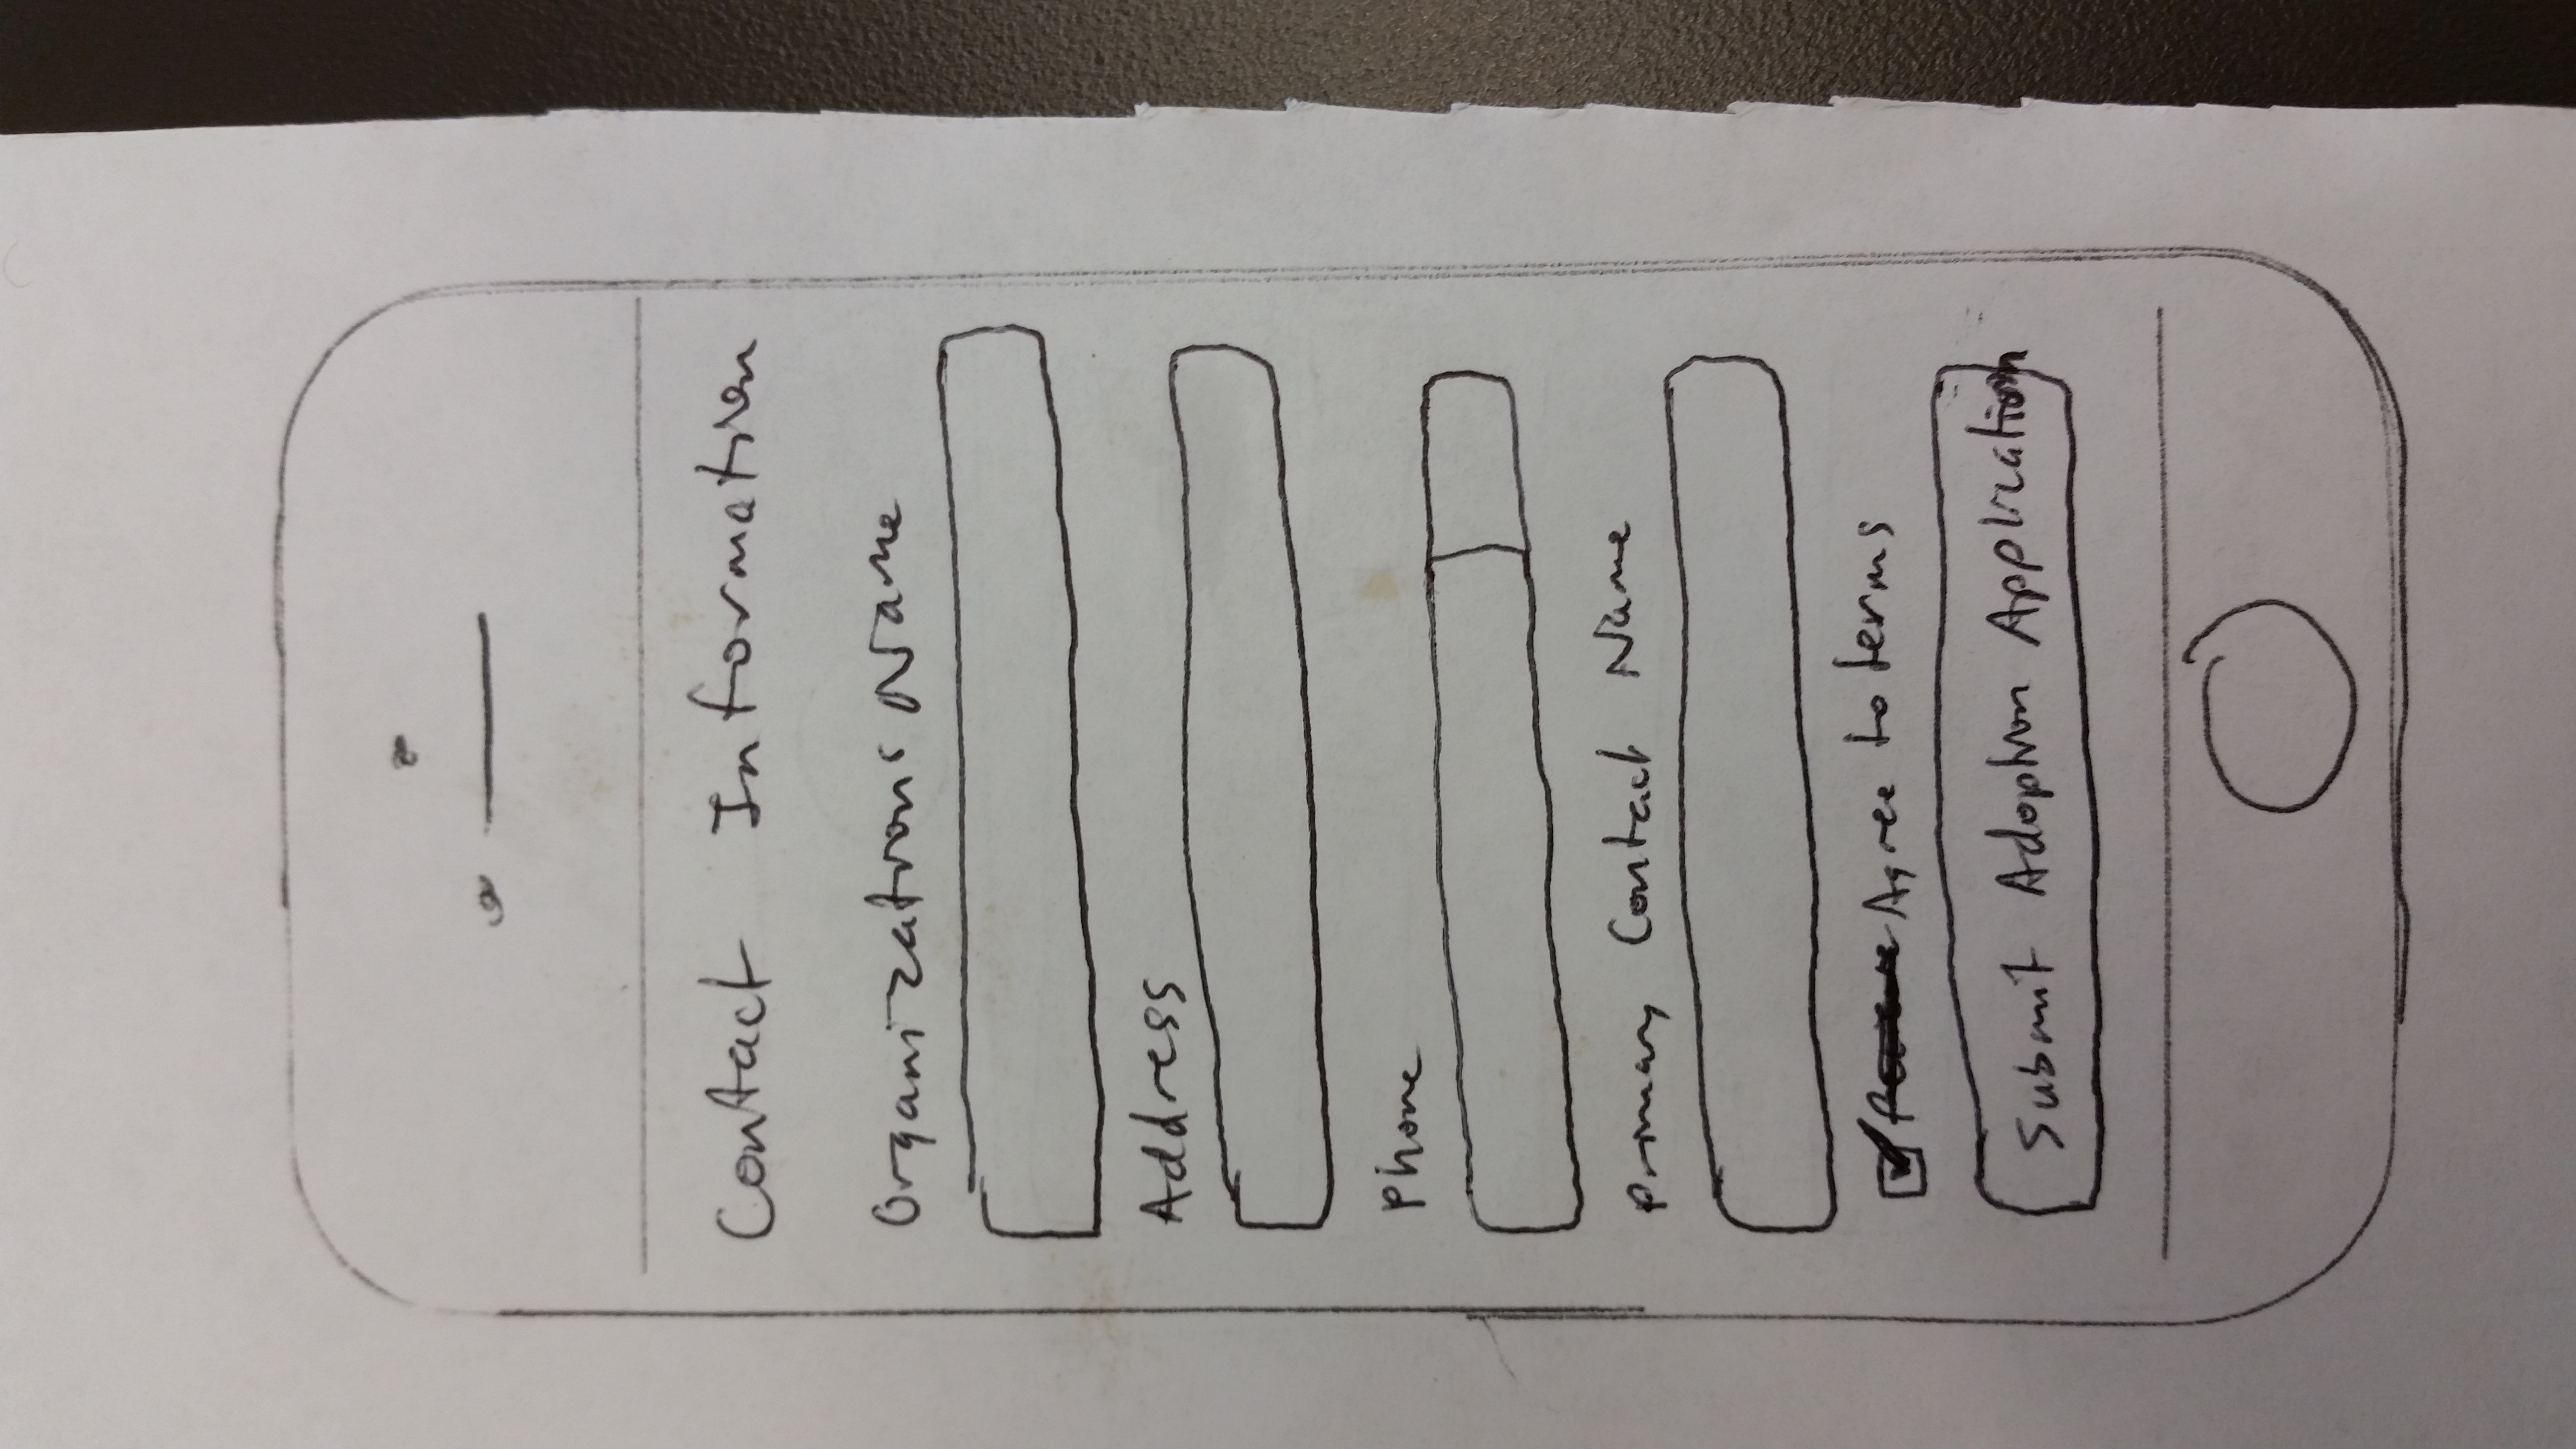 Contact Information
Organizations Name
Address
Phone
Primary Contact Name
Agree to terms
Submit Adoption Application